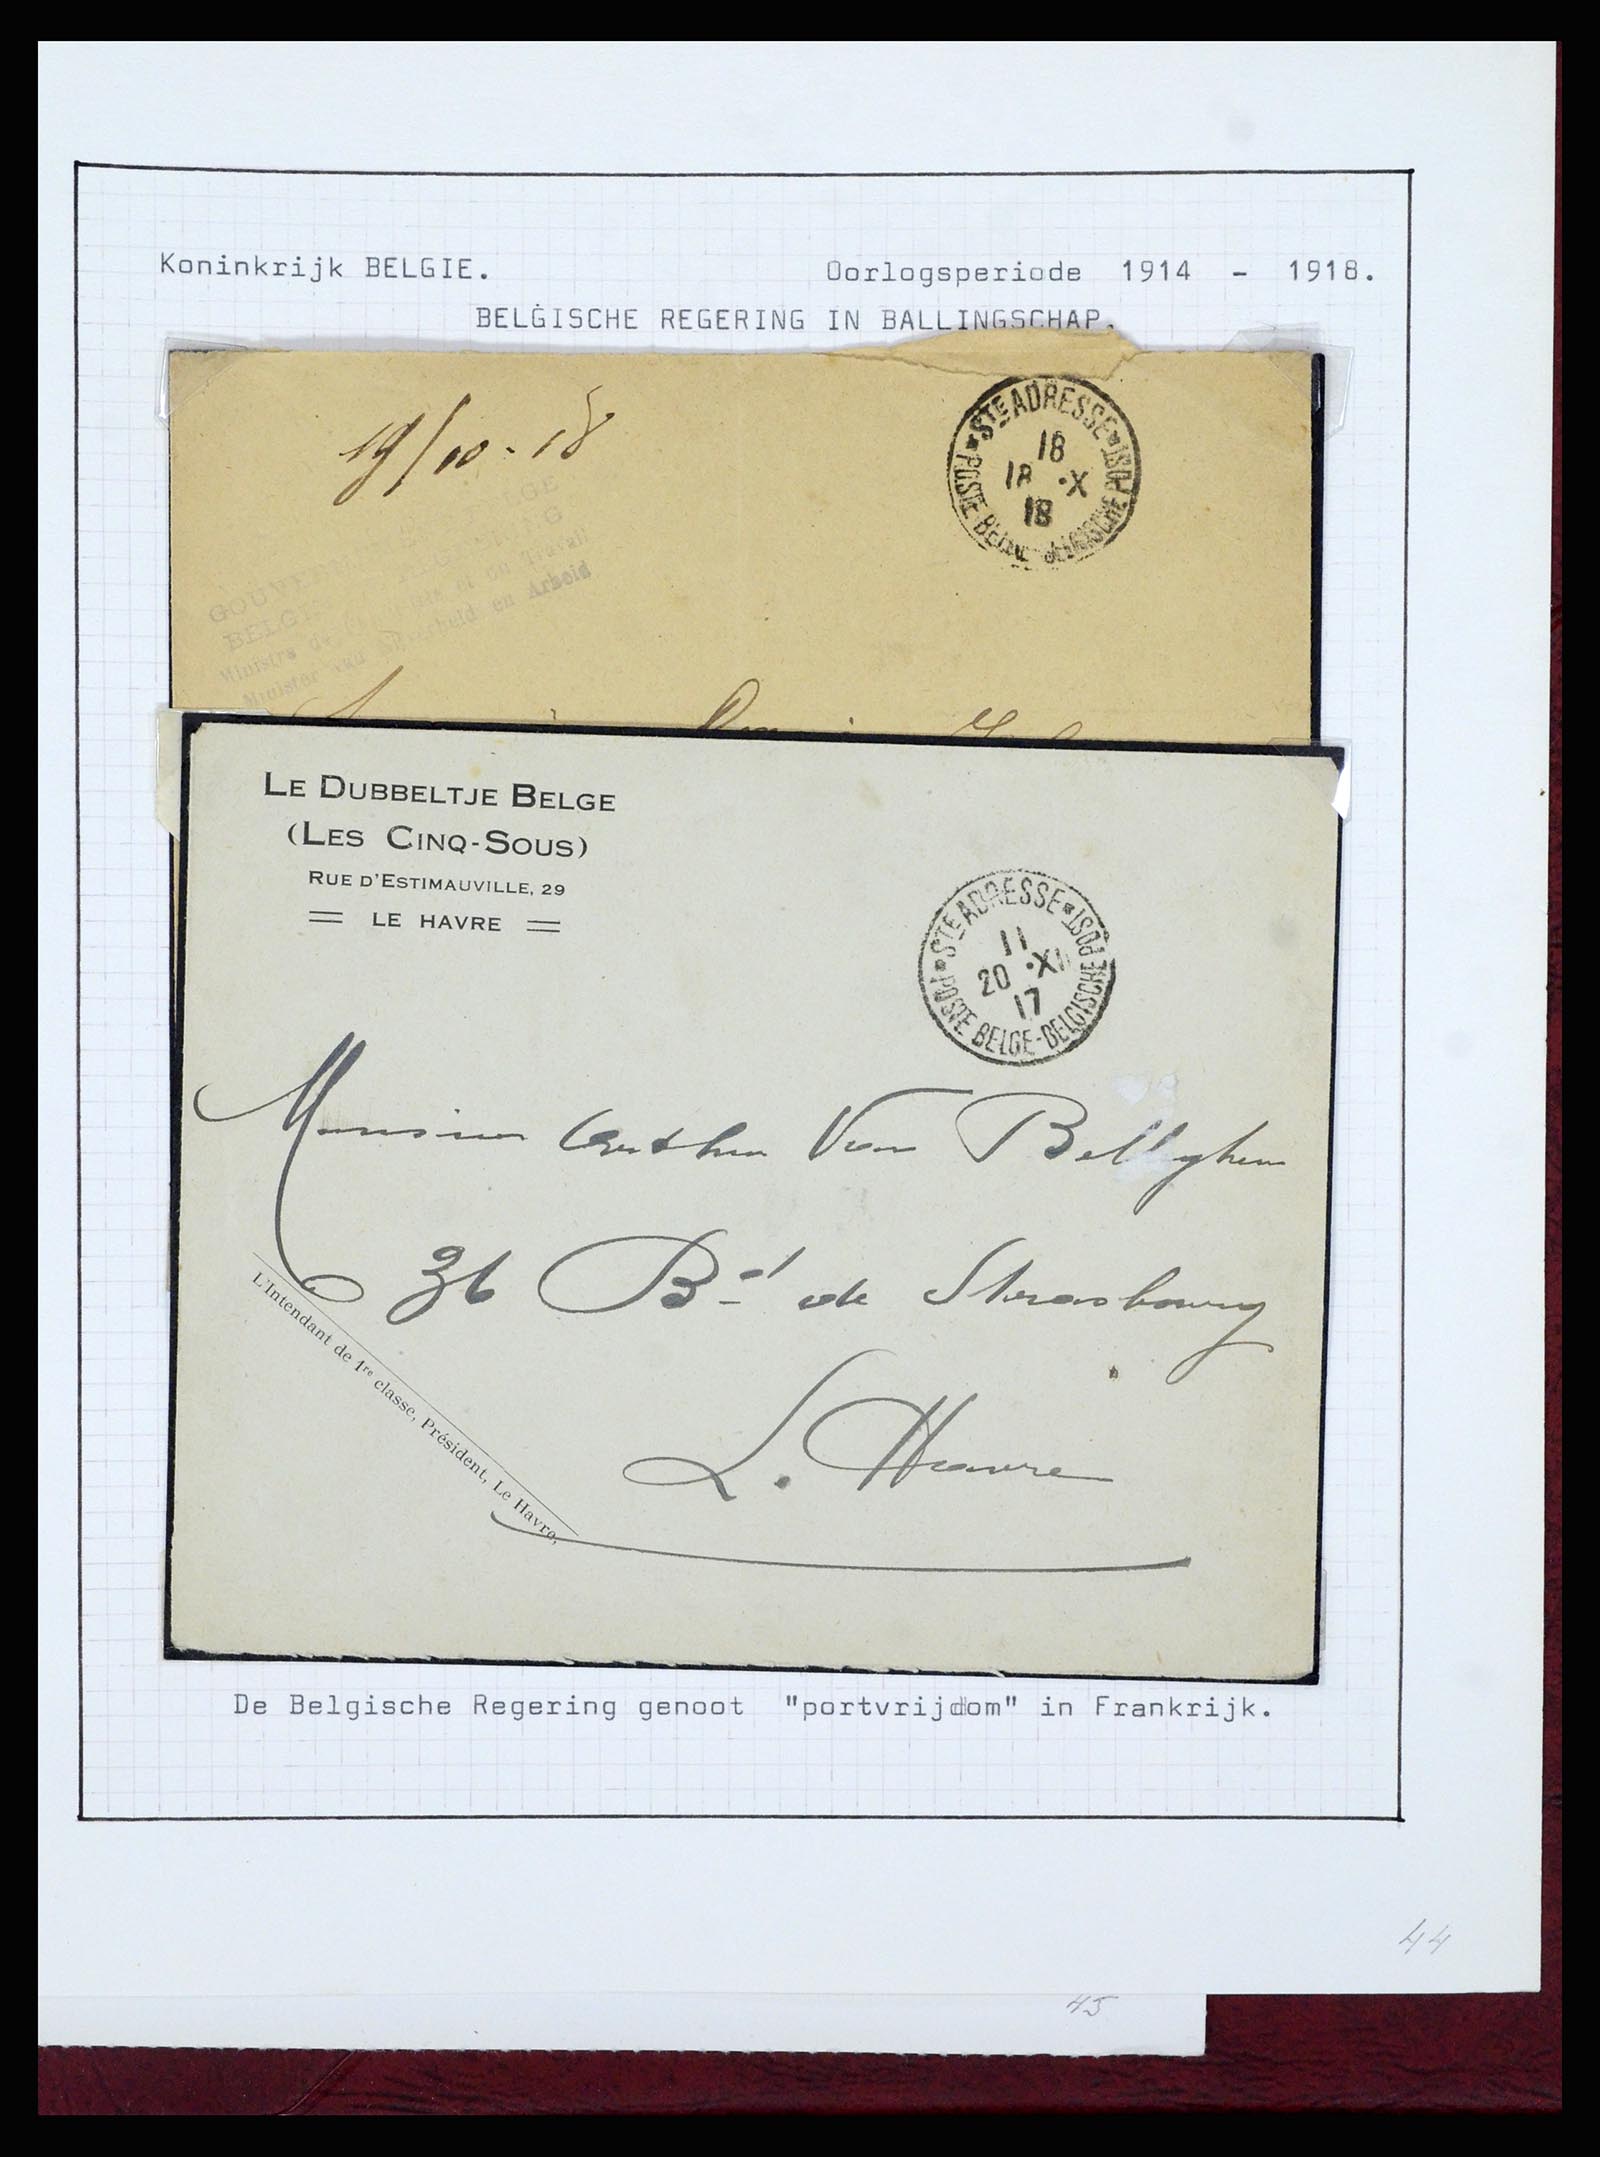 Koninkrijk BELGIE. Oorlogsperiode 1914 - 1918.
BELGISCHE REGERING IN BALLINGSCHAP.
19/10-18
STE ADRESSE
18
18 ·X
18
POSTE BELGE-BELGISCHE POST
GOUVERNEMENT BELGE
Ministre de et du Travail
Minister van Nijverheid en Arbeid
LE DUBBELTJE BELGE
(LES CINQ-SOUS)
RUE D'ESTIMAUVILLE, 29
LE HAVRE
STE ADRESSE
11
20 ·XII
17
POSTE BELGE-BELGISCHE POST
Monsieur Arthur Van Belleghem
36 Bd de Strasbourg
L. Havre
L'Intendant de 1re classe, Président, Le Havre,
De Belgische Regering genoot "portvrijdom" in Frankrijk.
44
45